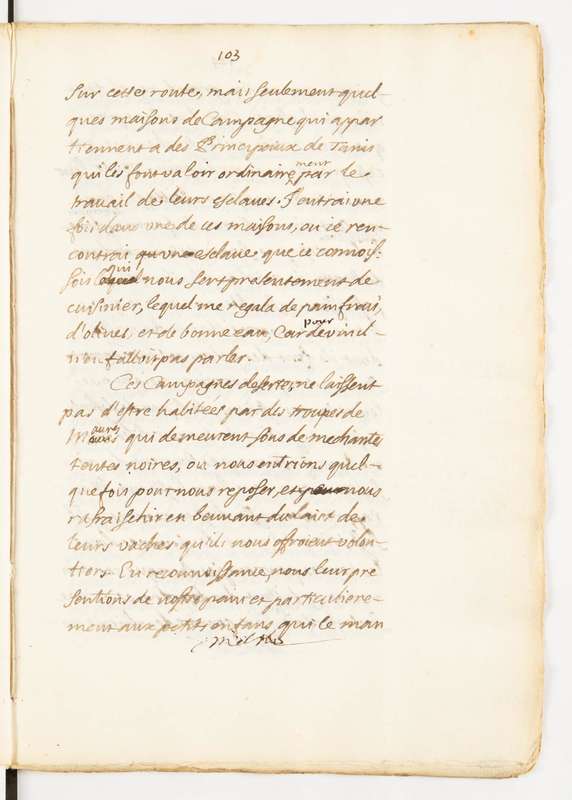 103
sur cette route, mais seulement quel-
ques maisons de Campagne qui appar
tiennent a des Principaux de Tunis
qui les font valoir ordinairement par le
travail de leurs esclaves. J'entrai une
fois dans une de ces maisons, ou ie ren-
contrai un esclave que ie connois-
sois qui nous sert presentement de
cuisinier, lequel me regala de pain frais,
d'olives, et de bonne eau, Car pour de vin il
n'en falloit pas parler.
Ces Campagnes desertes, ne laissent
pas d'estre habitées par des troupes de
Maures qui demeurent sous de mechantes
tentes noires, ou nous entrions quel-
que fois pour nous reposer, et nous
rafraischir en beuvant du laict de
leurs vaches qu'ils nous offroient volon-
tiers. En reconnoissance, nous leur pre
sentions de nostre pain et particuliere-
ment aux petits enfans qui le man